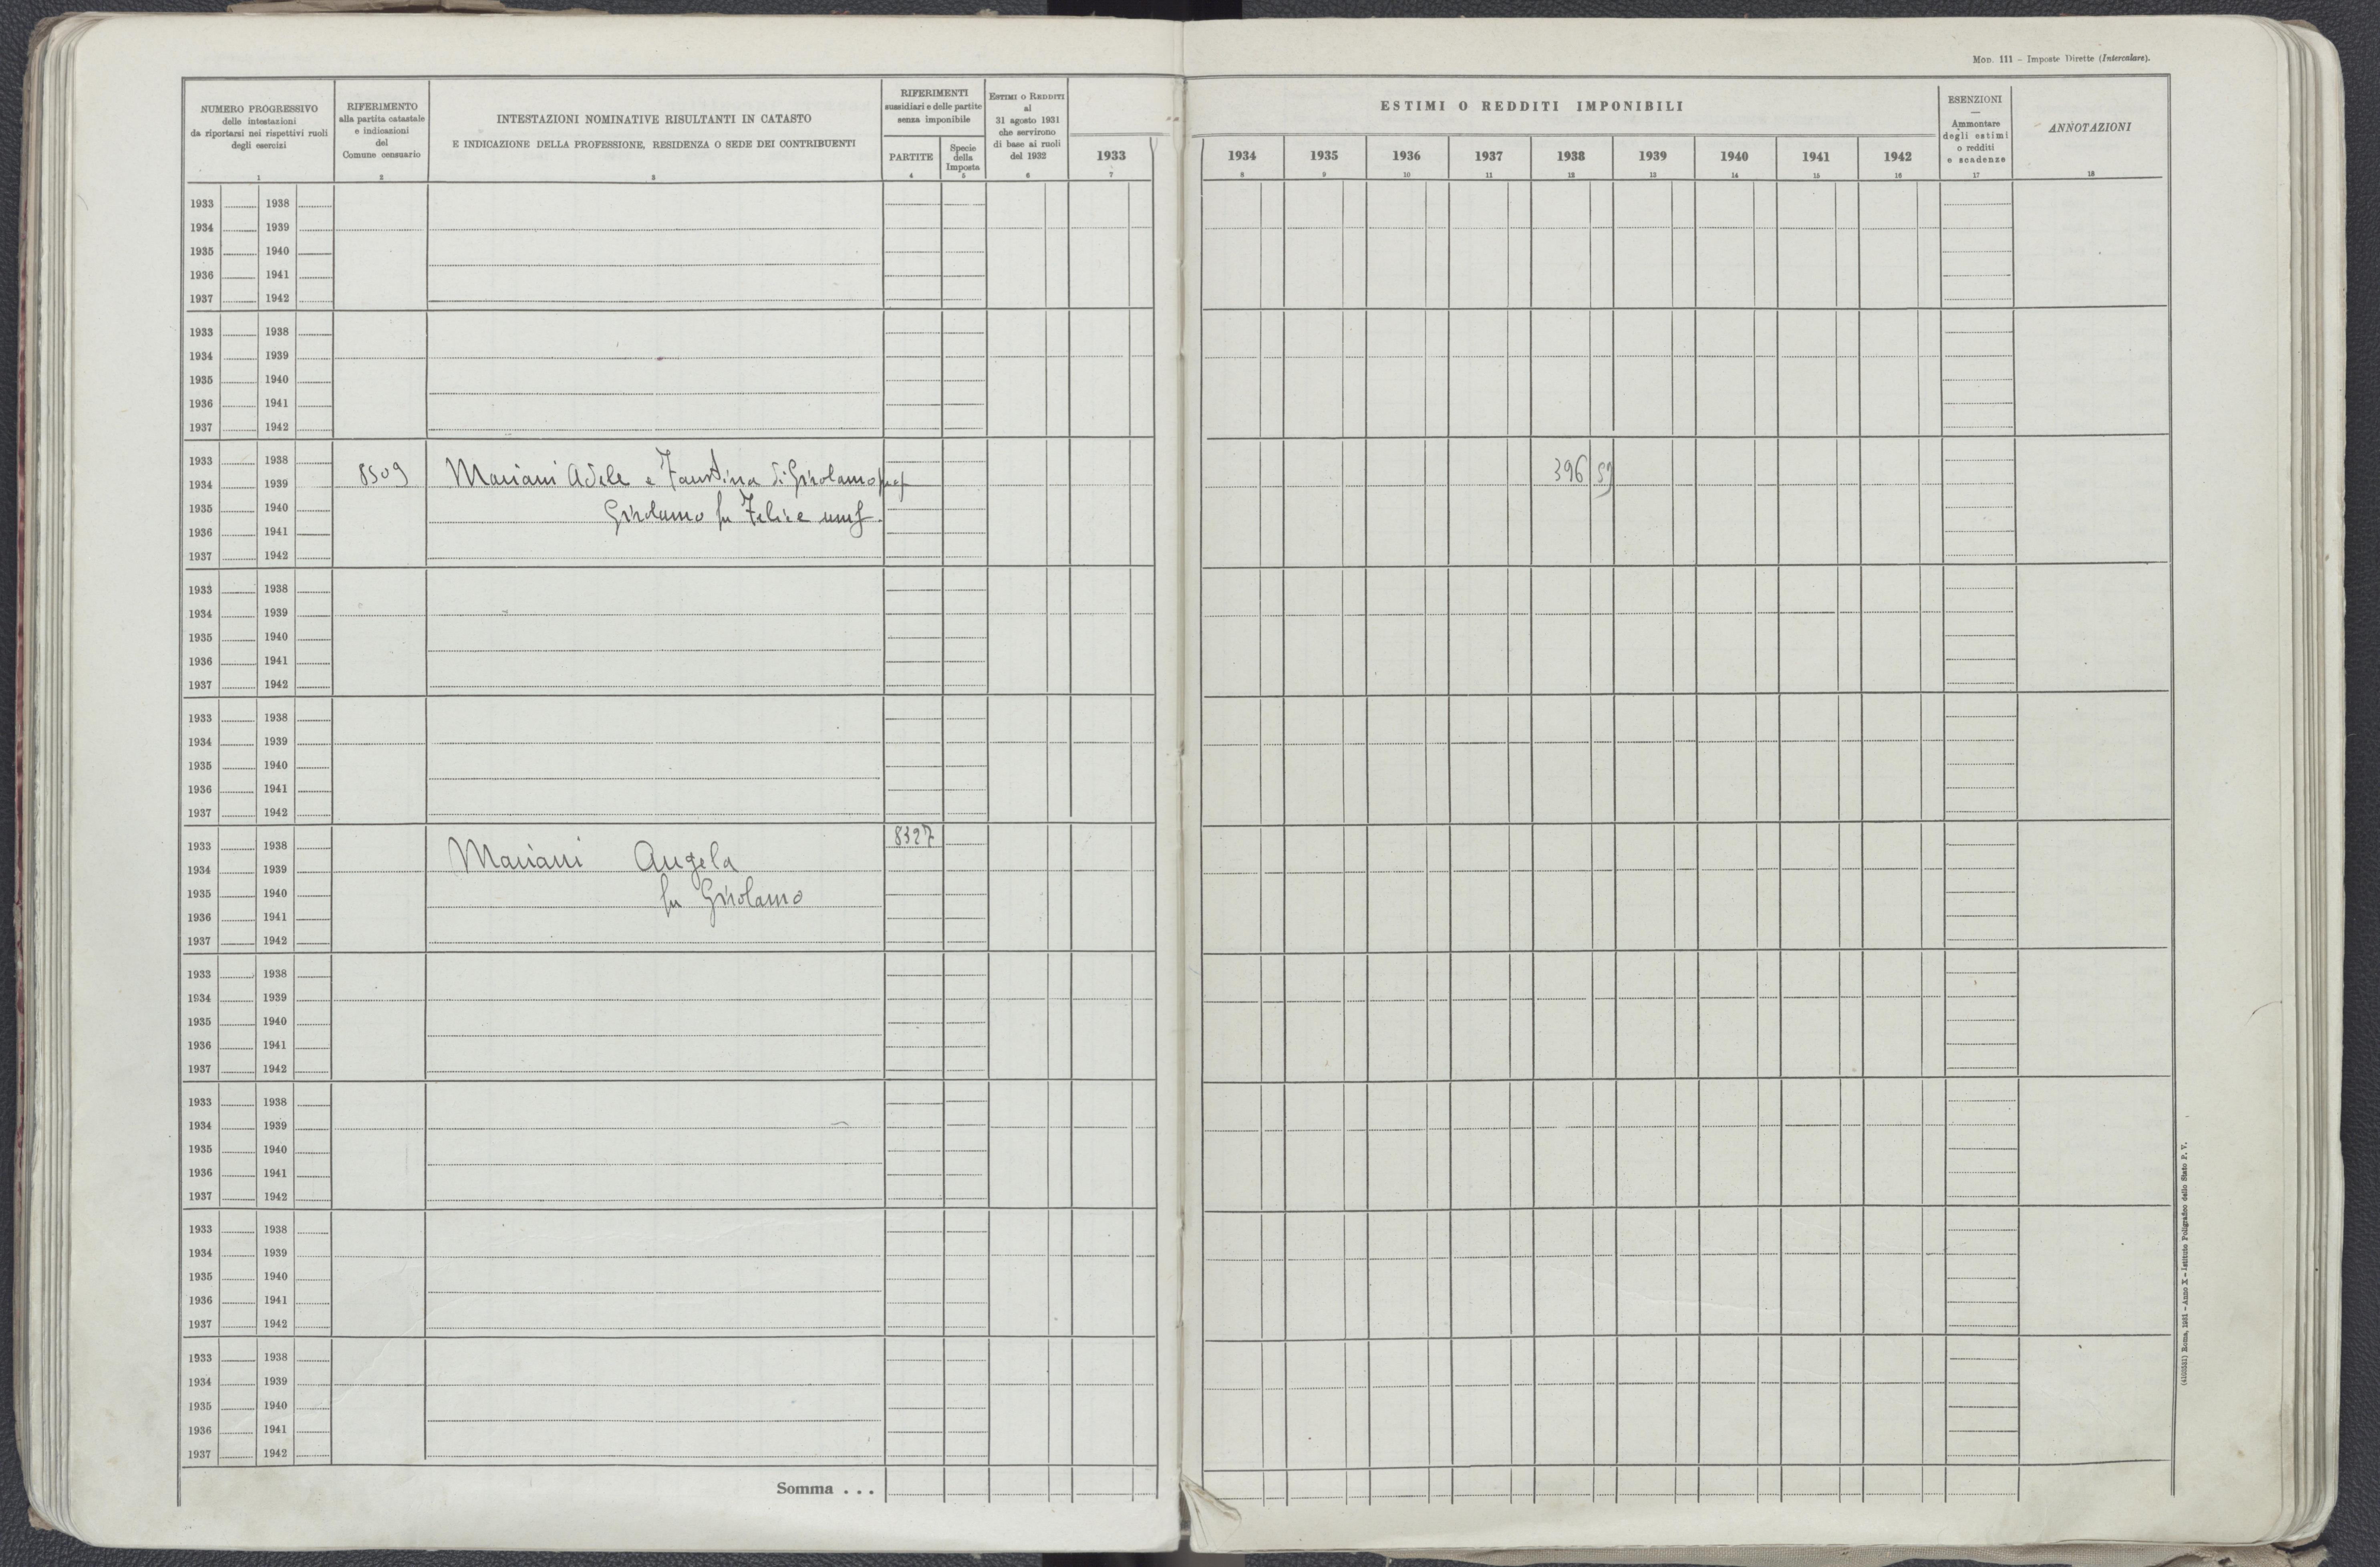 Mod. 111 – Imposte Dirette (Intercalare).
NUMERO PROGRESSIVO
delle intestazioni
da riportarsi nei rispettivi ruoli
degli esercizi
1
RIFERIMENTO
alla partita catastale
e indicazioni
del
Comune censuario
2
INTESTAZIONI NOMINATIVE RISULTANTI IN CATASTO
E INDICAZIONE DELLA PROFESSIONE, RESIDENZA O SEDE DEI CONTRIBUENTI
3
RIFERIMENTI
sussidiari e delle partite
senza imponibile
PARTITE
4
Specie
della
Imposta
5
Estimi o Redditi
al
31 agosto 1931
che servirono
di base ai ruoli
del 1932
6
1933
7
ESTIMI O REDDITI IMPONIBILI
1934 1935 1936 1937 1938 1939 1940 1941 1942
8 9 10 11 12 13 14 15 16
ESENZIONI
—
Ammontare
degli estimi
o redditi
e scadenze
17
ANNOTAZIONI
18
1933 1938
1934 1939
1935 1940
1936 1941
1937 1942
1933 1938
1934 1939
1935 1940
1936 1941
1937 1942
1933 1938
1934 1939 8509 Mariani Adele e Faustina di Girolamo prop 396 59
1935 1940 Girolamo fu Felice usuf.
1936 1941
1937 1942
1933 1938
1934 1939
1935 1940
1936 1941
1937 1942
1933 1938
1934 1939
1935 1940
1936 1941
1937 1942
1933 1938 8327
1934 1939 Mariani Angela
1935 1940 fu Girolamo
1936 1941
1937 1942
1933 1938
1934 1939
1935 1940
1936 1941
1937 1942
1933 1938
1934 1939
1935 1940
1936 1941
1937 1942
1933 1938
1934 1939
1935 1940
1936 1941
1937 1942
1933 1938
1934 1939
1935 1940
1936 1941
1937 1942
Somma . . .
Roma, 1931 – Anno X – Istituto Poligrafico dello Stato P. V.